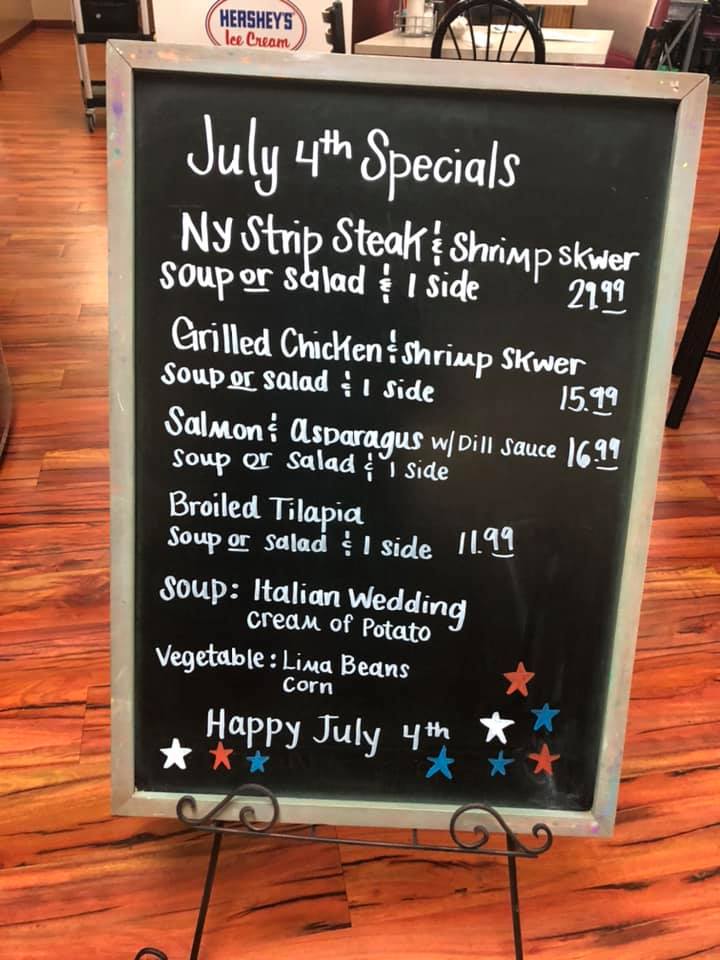 HERSHEY'S
Ice Cream
July 4th Specials
Ny Strip Steak & Shrimp Skwer
Soup or salad & 1 side 21.99
Grilled Chicken & Shrimp Skwer
Soup or Salad & 1 Side 15.99
Salmon & Asparagus w/ Dill Sauce 16.99
Soup or Salad & 1 Side
Broiled Tilapia
Soup or Salad & 1 side 11.99
Soup: Italian Wedding
Cream of Potato
Vegetable: Lima Beans
Corn
Happy July 4th